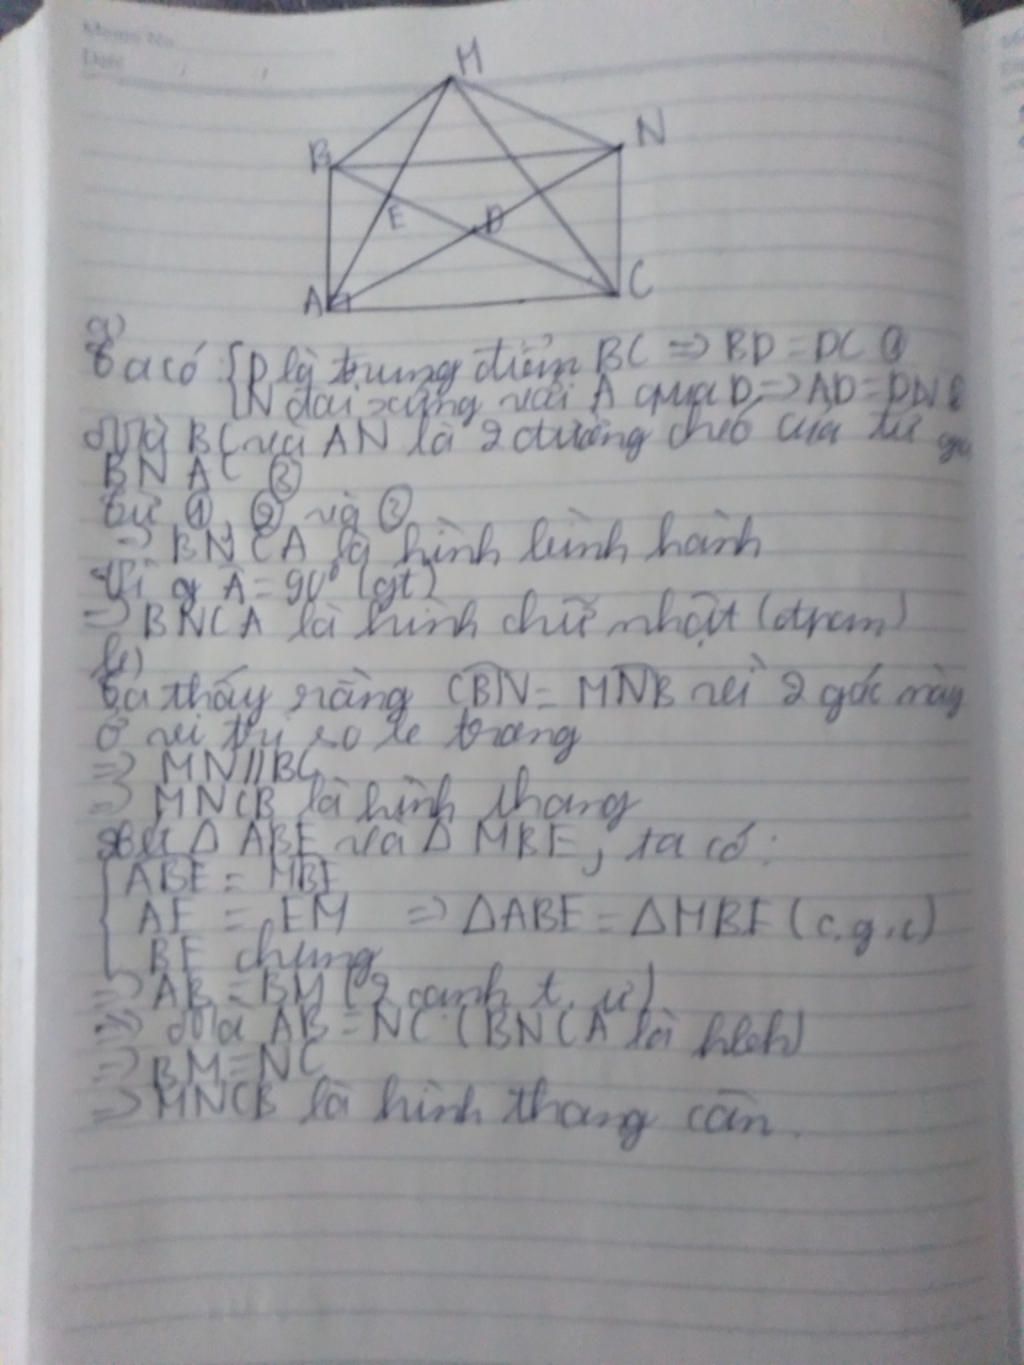 Memo No.
Date / /
M
B
N
E
D
A
C
a)
Ta có: { D là trung điểm BC => BD = DC ①
N đối xứng với A qua D => AD = DN ②
Mà BC và AN là 2 đường chéo của tứ
BNAC ③
Từ ①, ② và ③
=> BNCA là hình bình hành
Vì Â = 90° (gt)
=> BNCA là hình chữ nhật (đpcm)
b)
Ta thấy rằng CBN = MNB vì 2 góc này
ở vị trí so le trong
=> MN // BC
=> MNCB là hình thang
Xét Δ ABE và Δ MBE, ta có:
ABE = MBE
AE = EM => ΔABE = ΔMBE (c.g.c)
BE chung
=> AB = BM (2 cạnh t.ư)
=> Mà AB = NC (BNCA là hbh)
=> BM = NC
=> MNCB là hình thang cân.